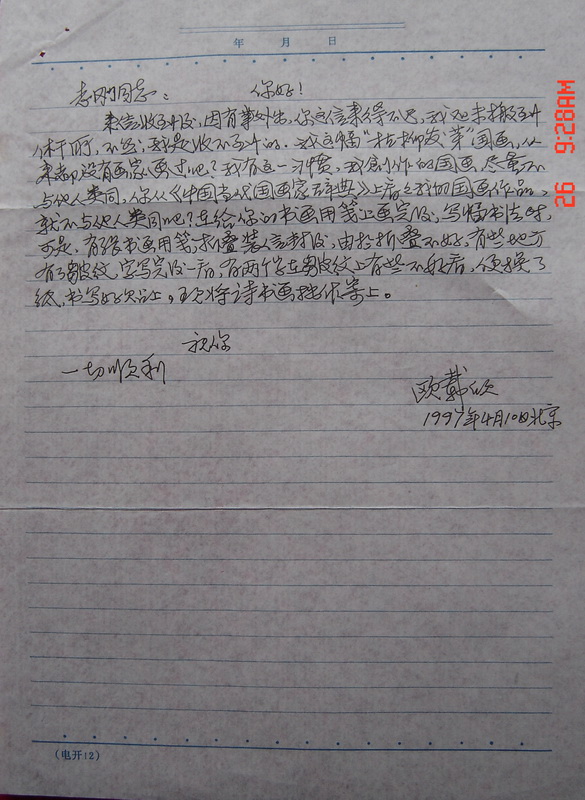 年 月 日
志刚同志： 你好！
来信收到后，因有事外出，你这信来得不迟，我还未搬到
休干所，不然，我是收不到的。我这幅“枯柳发芽”国画，从
来都没有画家画过吧？我有这一习惯，我创作的国画，尽量不
与他人类同，你从《中国当代国画家辞典》上看到我的国画作品，
就不与他人类同吧？在给你的书画用笺上画完后，写幅书法时，
可是，有张书画用笺，折叠装信封后，由于折叠不好，有些地方
有了皱纹，字写完后一看，有两个字在皱纹上有些不好看，便换了
纸，书写好次上，现将诗书画拙作寄上。
祝你
一切顺利
欧戴欣
1997年4月10日北京
(电开12)
26 9:28AM